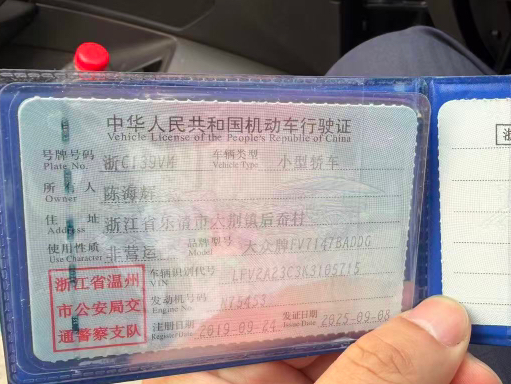 中华人民共和国机动车行驶证
Vehicle License of the People's Republic of China
号牌号码 浙C139VM 车辆类型 小型轿车
Plate No. Vehicle Type
所有人 陈海辉
Owner
住址 浙江省乐清市大荆镇后奋村
Address
使用性质 非营运 品牌型号 大众牌FV7147BADDG
Use Character Model
浙江省温州
市公安局交
通警察支队
车辆识别代号 LFV2A23C3K3105715
VIN
发动机号码
Engine No.
注册日期 2019-09-24 发证日期 2025-09-08
Register Date Issue Date